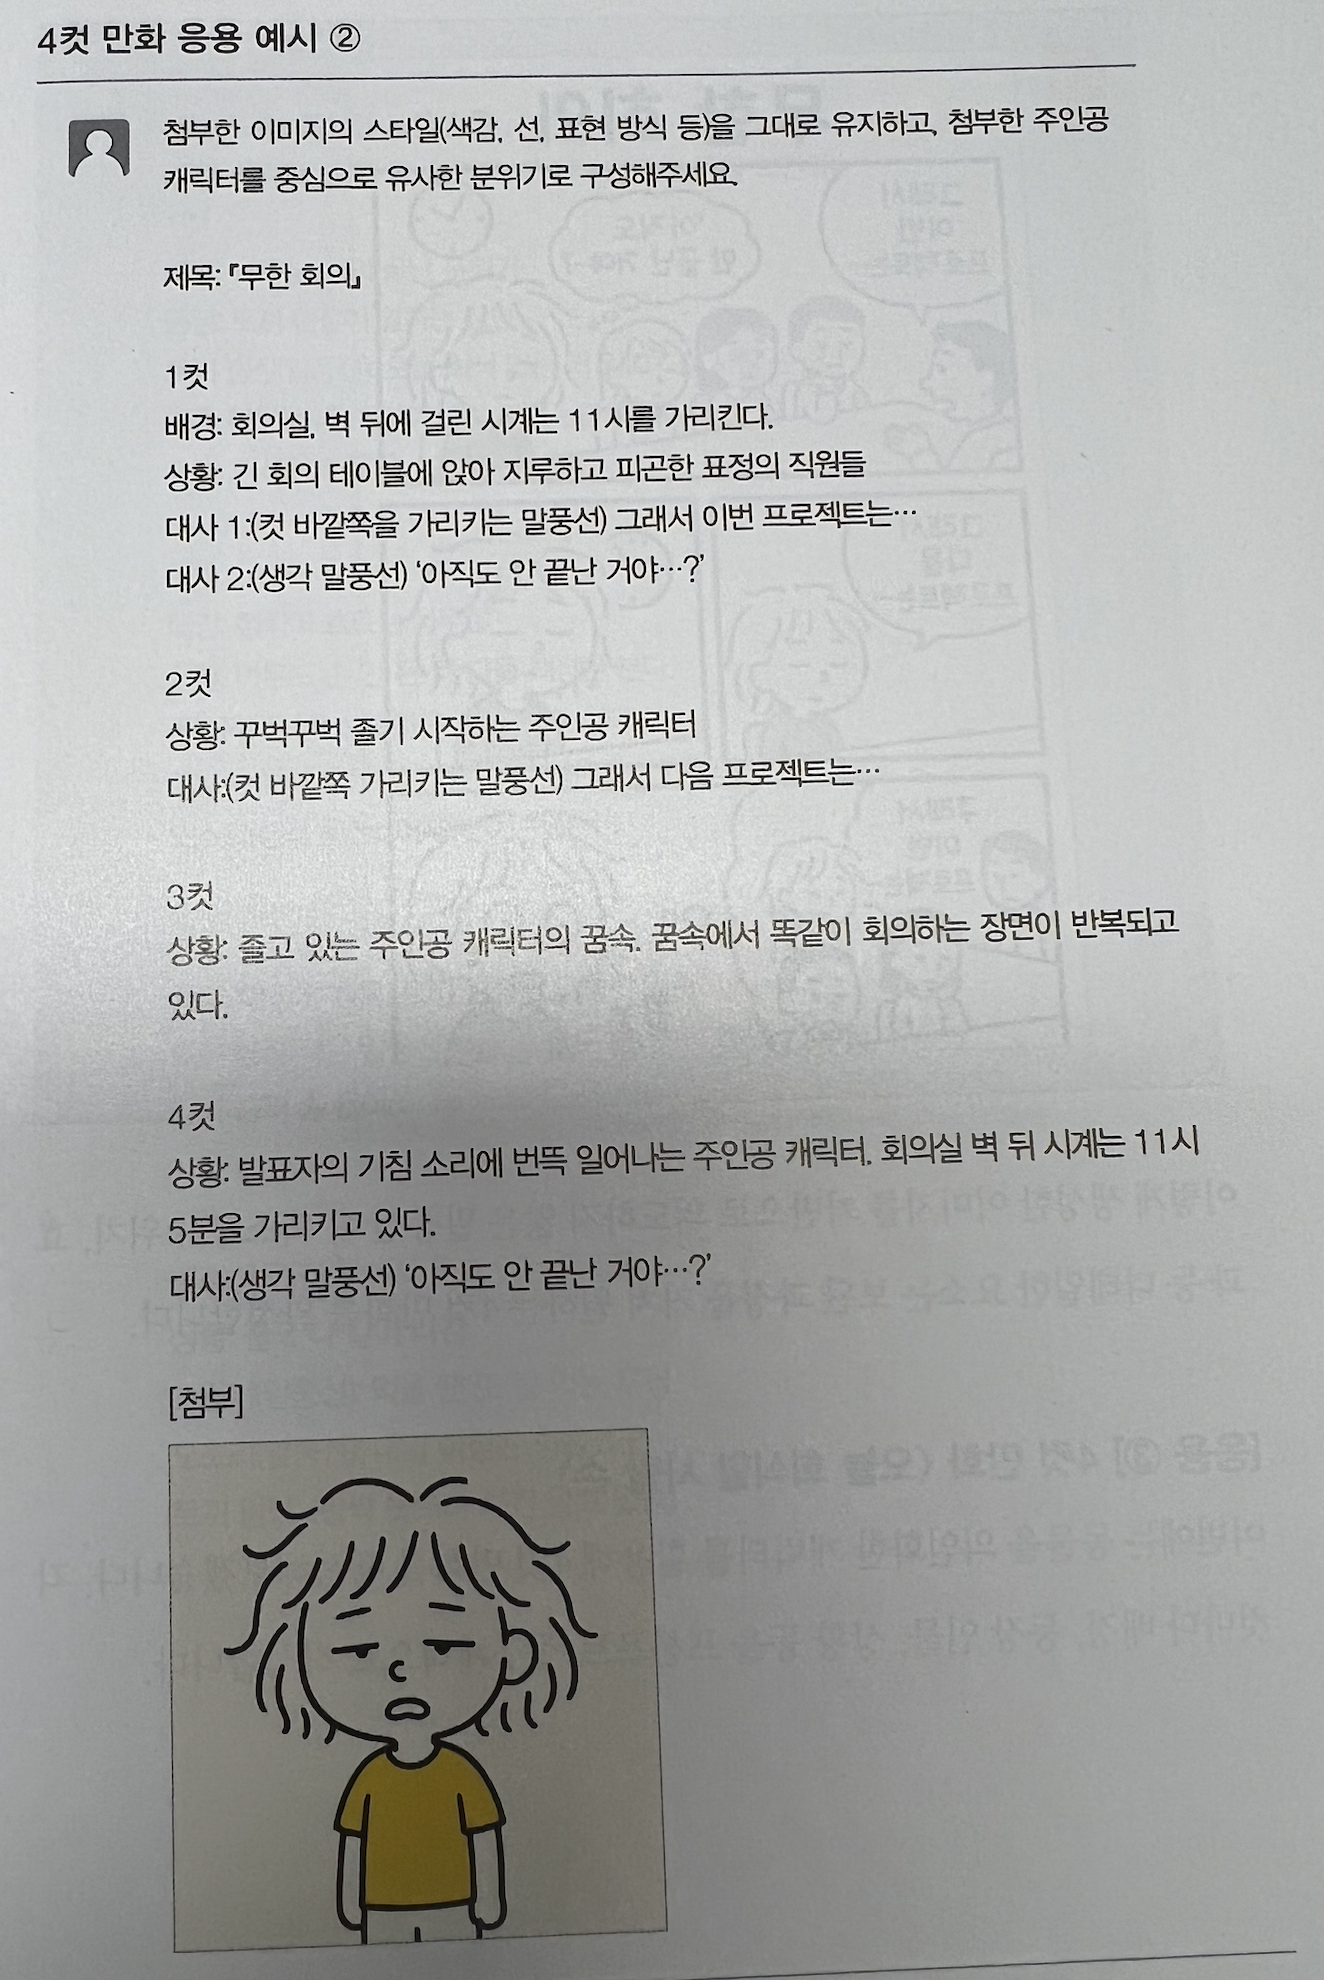 4컷 만화 응용 예시 ②
첨부한 이미지의 스타일(색감, 선, 표현 방식 등)을 그대로 유지하고, 첨부한 주인공
캐릭터를 중심으로 유사한 분위기로 구성해주세요.
제목: 『무한 회의』
1컷
배경: 회의실, 벽 뒤에 걸린 시계는 11시를 가리킨다.
상황: 긴 회의 테이블에 앉아 지루하고 피곤한 표정의 직원들
대사 1:(컷 바깥쪽을 가리키는 말풍선) 그래서 이번 프로젝트는…
대사 2:(생각 말풍선) ‘아직도 안 끝난 거야…?’
2컷
상황: 꾸벅꾸벅 졸기 시작하는 주인공 캐릭터
대사:(컷 바깥쪽 가리키는 말풍선) 그래서 다음 프로젝트는…
3컷
상황: 졸고 있는 주인공 캐릭터의 꿈속. 꿈속에서 똑같이 회의하는 장면이 반복되고
있다.
4컷
상황: 발표자의 기침 소리에 번뜩 일어나는 주인공 캐릭터. 회의실 벽 뒤 시계는 11시
5분을 가리키고 있다.
대사:(생각 말풍선) ‘아직도 안 끝난 거야…?’
[첨부]